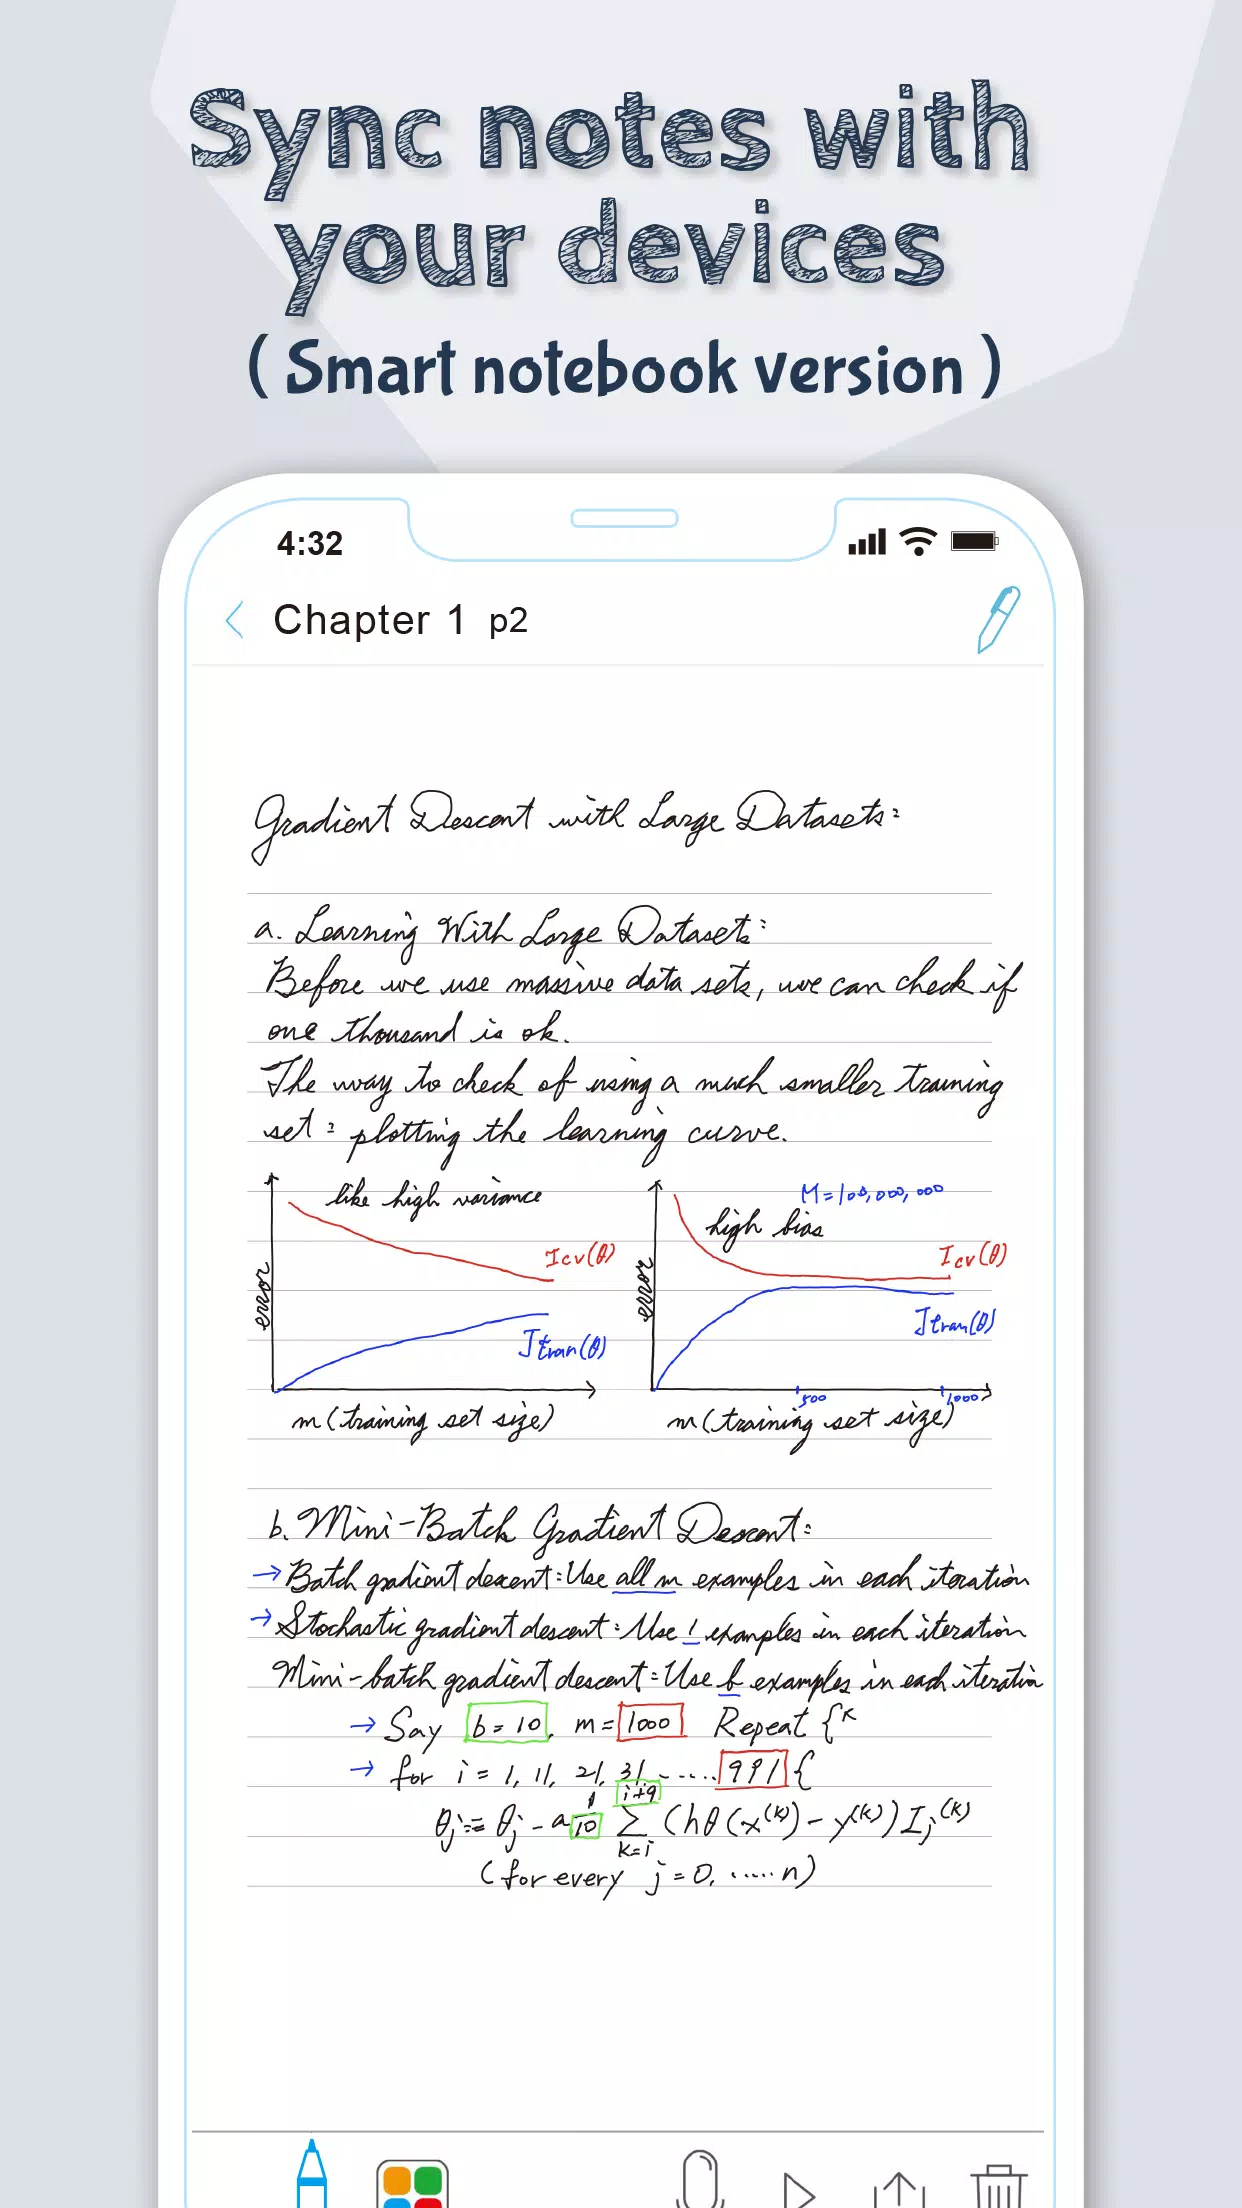 Sync notes with
your devices
( Smart notebook version )
4:32
Chapter 1 p2
Gradient Descent with Large Datasets:
a. Learning With Large Datasets:
Before we use massive data sets, we can check if
one thousand is ok.
The way to check of using a much smaller training
set: plotting the learning curve.
like high variance
error
Icv(θ)
Jtran(θ)
m (training set size)
M=100,000,000
high bias
error
Icv(θ)
Jtran(θ)
500
1000
m (training set size)
b. Mini-Batch Gradient Descent:
→ Batch gradient descent: Use all m examples in each iteration
→ Stochastic gradient descent: Use 1 examples in each iteration
Mini-batch gradient descent: Use b examples in each iteration
→ Say b = 10, m = 1000 Repeat {
→ for i = 1, 11, 21, 31, ..... 991 {
θj := θj - a 1/10 i+9 Σ k=i (hθ(x(k)) - y(k)) Ij(k)
(for every j = 0, ..... n)